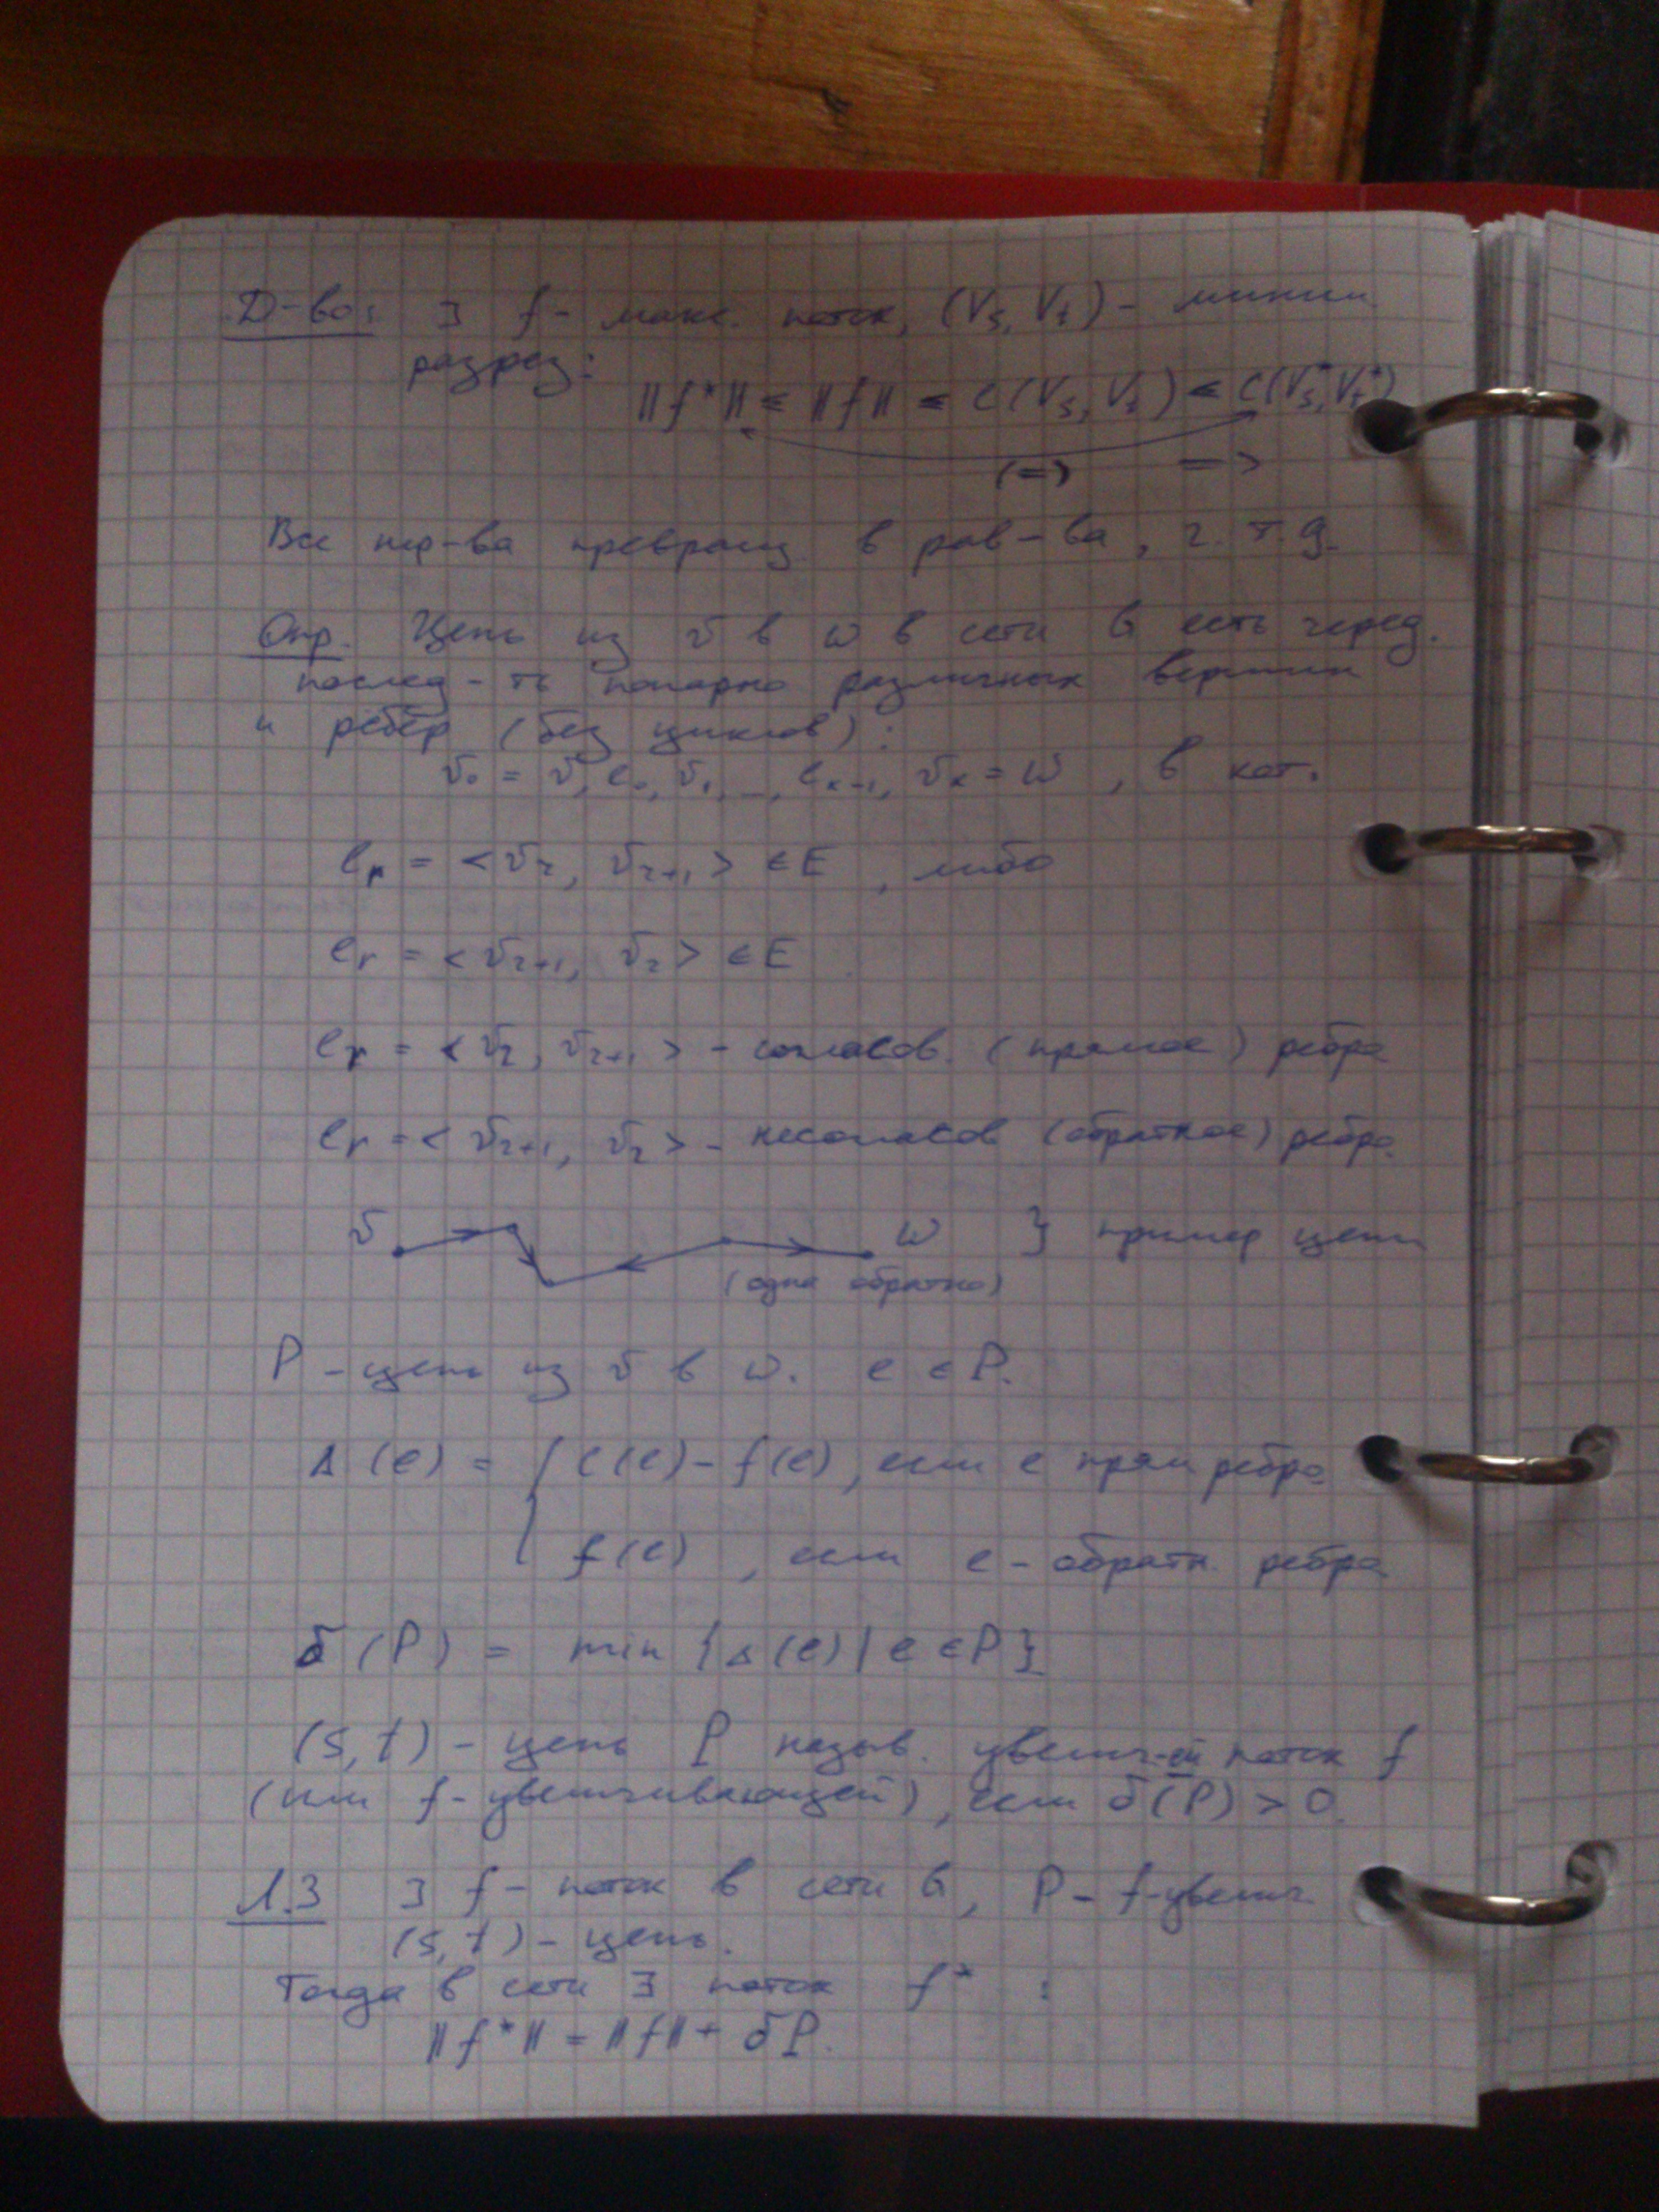 Д-во: ∃ f - макс. поток, (Vs, Vt) - миним
разрез:
||f*|| ≤ ||f|| ≤ c(Vs, Vt) ≤ c(Vs*, Vt*)
(=) =>
Все нер-ва превращ. в рав-ва, ч.т.д.
Опр. Цепь из v в w в сети G есть черед.
послед-ть попарно различных вершин
и рёбер (без циклов):
v₀ = v, e₀, v₁, ..., eₖ₋₁, vₖ = w , в кот.
eᵣ = <vᵣ, vᵣ₊₁> ∈ E , либо
eᵣ = <vᵣ₊₁, vᵣ> ∈ E
eᵣ = <vᵣ, vᵣ₊₁> - согласов. (прямое) ребро
eᵣ = <vᵣ₊₁, vᵣ> - несогласов (обратное) ребро.
v w } пример цепи
(одна обратно)
P - цепь из v в w. e ∈ P.
Δ(e) = { c(e) - f(e), если e прям ребро
f(e) , если e - обратн. ребро
δ(P) = min {Δ(e) | e ∈ P}
(s, t) - цепь P назыв. увелич-ей поток f
(или f - увеличивающей), если δ(P) > 0.
Л.3 ∃ f - поток в сети G, P - f-увелич.
(s, t) - цепь.
Тогда в сети ∃ поток f* :
||f*|| = ||f|| + δP.